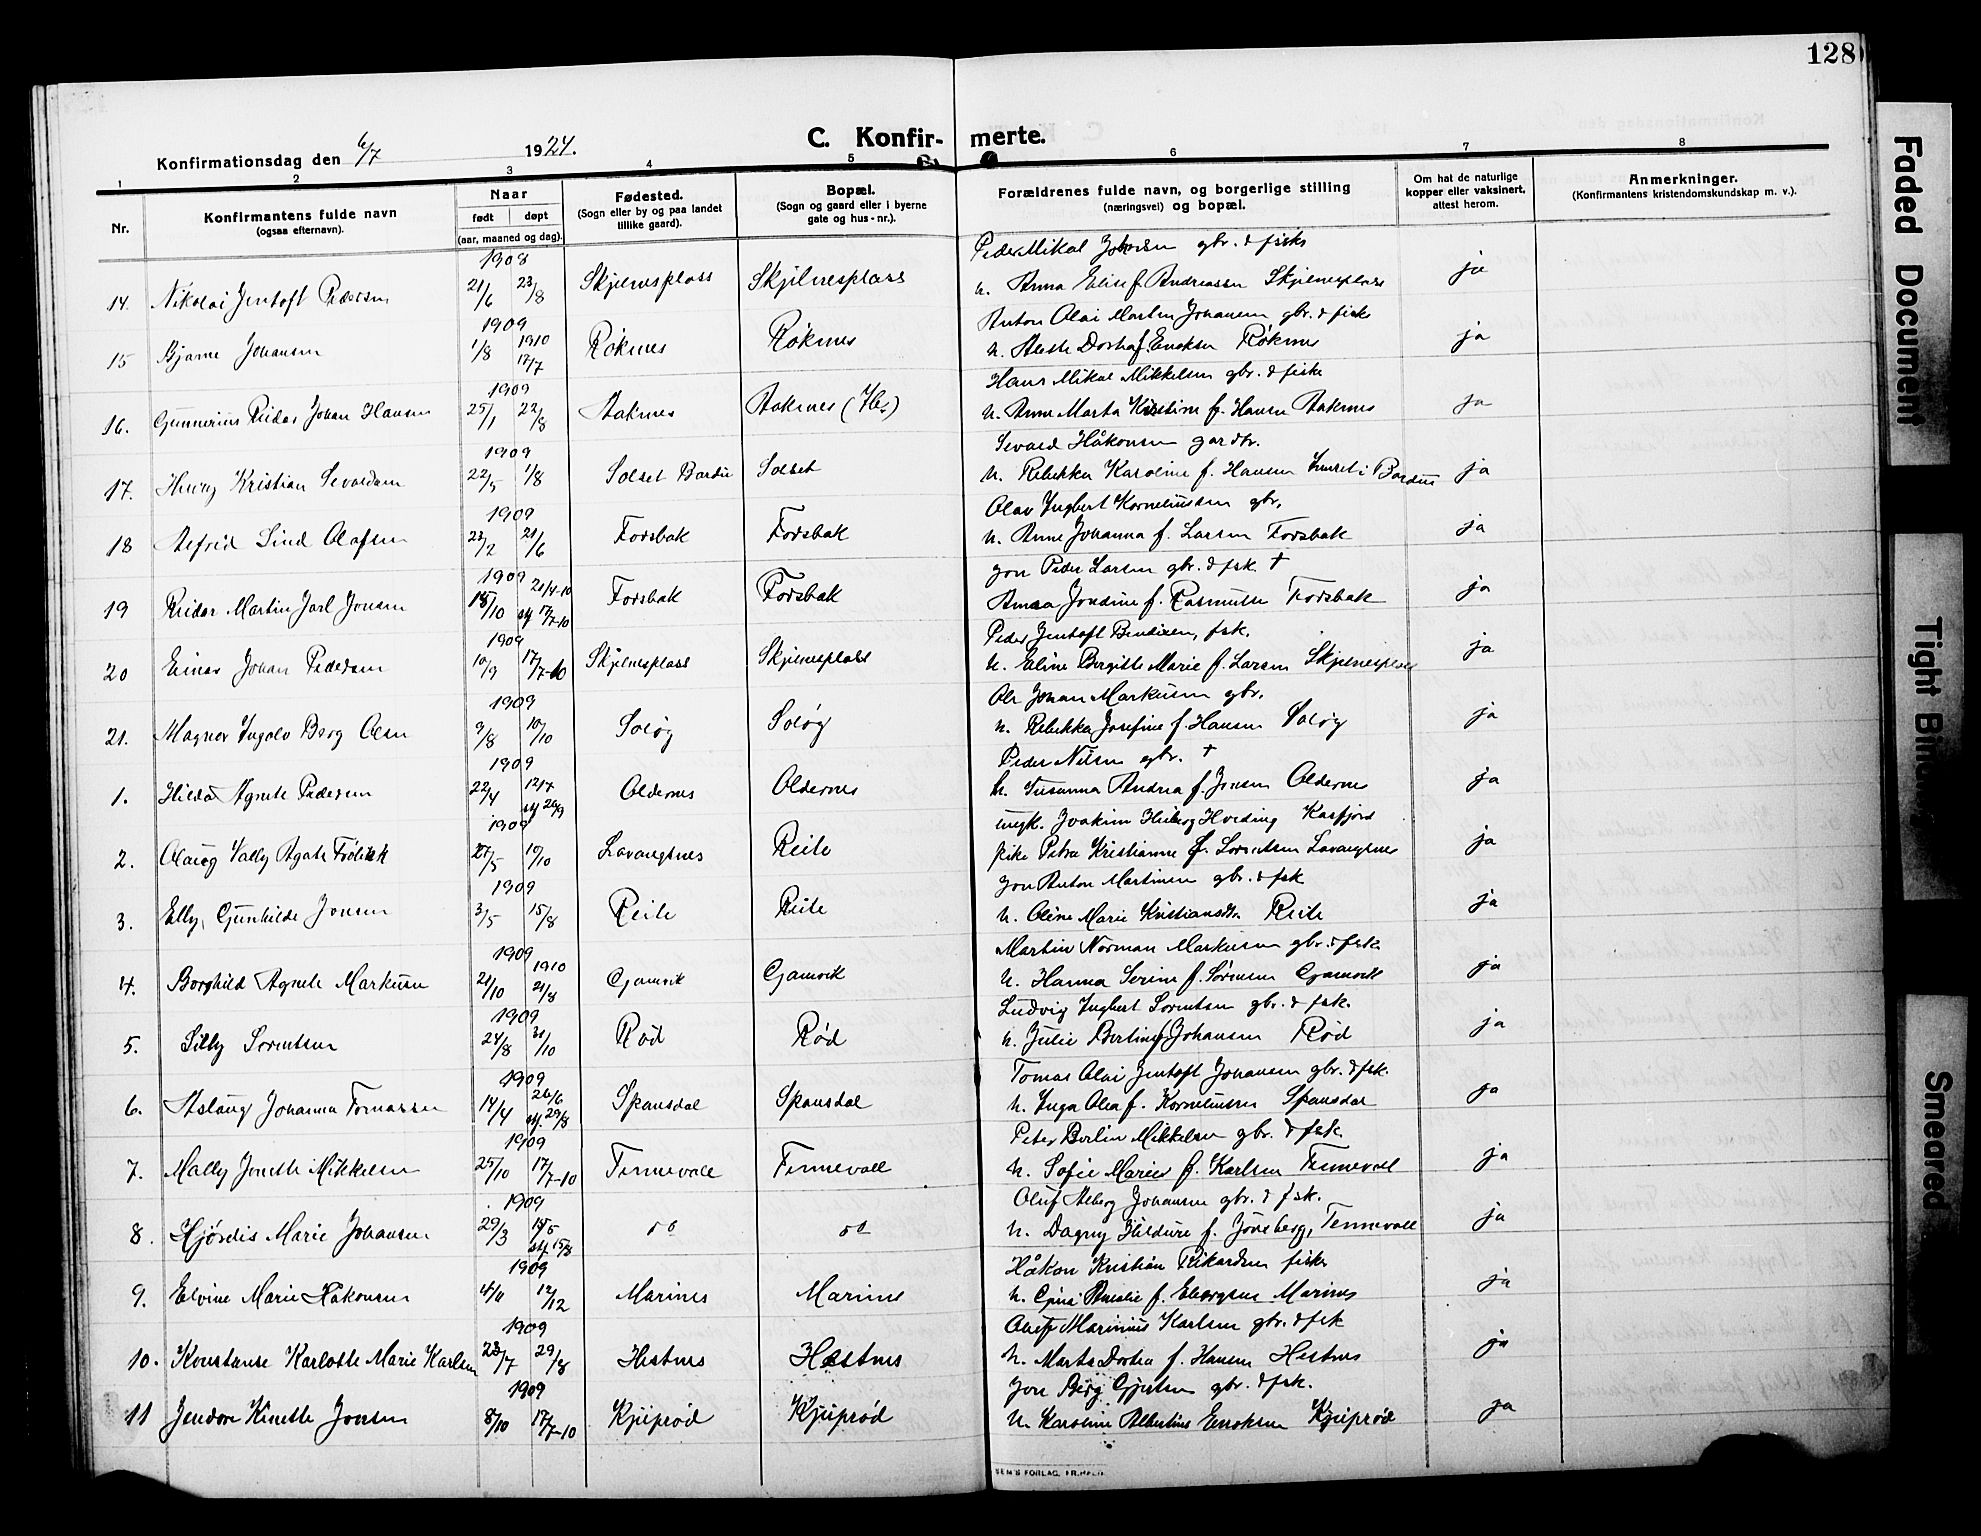 128
Konfirmationsdag den 6/7 1924. C. Konfirmerte.
1 2 3 4 5 6 7 8
Nr. Konfirmantens fulde navn (ogsaa efternavn). Naar født døpt (aar, maaned og dag). Fødested. (Sogn eller by og paa landet tillike gaard). Bopæl. (Sogn og gaard eller i byerne gate og hus-nr.). Forældrenes fulde navn, og borgerlige stilling (næringsvei) og bopæl. Om hat de naturlige kopper eller vaksinert, attest herom. Anmerkninger. (Konfirmantens kristendomskundskap m. v.).
1908 Peder Mikal gbr. & fisk
14. Nikolai Jentoft Pedersen 21/6 23/8 Skjelnesplass Skjelnesplass u. Anna Elise f. Andreassen Skjelnesplass ja
1909 1910 Anton Olai Martin Johansen gbr. & fisk
15 Bjarne Johansen 1/8 17/7 Røknes Røknes Røknes ja
1909 Hans Mikal Mikkelsen gbr. & fisk
16. Gunnerius Reidar Johan Hansen 25/1 22/8 Aaknes Aaknes u. Anne Marta Kristine f. Hansen Aaknes ja
1909 Sevald Håkonsen
17. Kristian Sevaldsen 22/5 1/8 Solset Bardu Solset u. Rebekka Karoline f. Hansen i Bardu ja
1909 Olav Ingbert Korneliussen gbr.
18 Alfred Olafsen 23/2 21/6 Forsbak Forsbak u. Anne Johanna f. Larsen Forsbak ja
1909 Jon Peder Larsen gbr. & fsk. †
19 Reidar Martin Jarl Jonsen 21/4-10 17/7-10 Forsbak Forsbak Jondine f. Rasmussen Forsbak ja
1909 Peder Jentoft fsk.
20 Einar Johan Pedersen 10/9 17/7-10 Skjelnesplass Skjelnesplass u. Eline Birgitte Marie f. Larsen Skjelnesplass ja
1909 Ole Johan Markusen gbr.
21. Magnor Ingolv Berg Olsen 9/8 10/10 Soløy Soløy u. Rebekka Josefine f. Hansen Soløy ja
1909 Peder Nilsen gbr. †
1. Hilda Agnete Pedersen 22/4 Oldernes Oldernes h. Susanna Andrea f. Jonsen Oldernes ja
1909 ungk. Joakim Hveding Kasfjord
2. Olaug Vally Agate 10/10 Lavangsnes Reite pike Petra Kristianne f. Lorentsen Lavangsnes ja
1909 Jon Anton Martinsen gbr. & fsk
3. Elly Gunhilde Jonsen 3/5 15/8 Reite Reite u. Oline Marie Reite ja
1909 1910 Martin Norman Markusen gbr. & fsk.
4. Borghild Agnete Markusen 21/10 21/8 Gamvik Gamvik u. Hanna Serine f. Sørensen Gamvik ja
1909 Ludvig Ingbert Lorentsen gbr. & fsk.
5. Lorentsen 24/8 31/10 Rød Rød u. Julie f. Johansen Rød ja
1909 Tomas Olai Jentoft Johansen gbr. & fsk.
6. Aslaug Johanna Tomassen 14/4 Spansdal Spansdal u. Inga Olea f. Korneliussen Spansdal ja
1909 Peter Berlin Mikkelsen gbr. & fsk.
7. Mally Jonette Mikkelsen 25/10 17/7-10 Tennevoll Tennevoll u. Sofie Marie f. Karlsen Tennevoll ja
1909 Oluf Johansen gbr. & fsk.
8. Hjørdis Marie Johansen 29/3 do do u. Dagny Tennevoll ja
1909 Håkon Kristian Rikardsen fisker
9. Elvine Marie Håkonsen 4/11 12/12 Marines Marines u. Marines ja
1909 Oluf Marinius Karlsen gbr. & fsk
10. Konstanse Karlotte Marie Karlsen 23/7 29/8 Hestnes Hestnes u. Marta Dortea f. Hansen Hestnes ja
1909 Jon Berg gbr. & fsk.
11 Jonsen 8/10 17/7-10 Kjeiprød Kjeiprød u. Karoline Albertine Enoksen Kjeiprød ja
Faded Document
Tight
Smeared